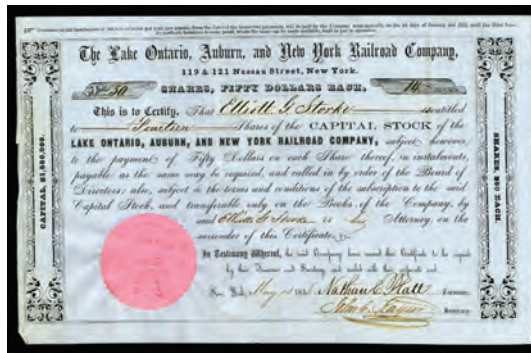 The Lake Ontario, Auburn, and New York Railroad Company,
119 & 121 Nassau Street, New York.
No. 50 SHARES, FIFTY DOLLARS EACH. 14
This is to Certify, That Elliott G. Storke is entitled
to Fourteen Shares of the CAPITAL STOCK of the
LAKE ONTARIO, AUBURN, AND NEW YORK RAILROAD COMPANY, subject however
to the payment of Fifty Dollars on each Share thereof, in instalments,
payable as the same may be required, and called in by order of the Board of
Directors; also, subject to the terms and conditions of the subscription to the said
Capital Stock, and transferable only on the Books of the Company, by
said Elliott G Storke or his Attorney, on the
surrender of this Certificate.
In Testimony Whereof, the said Company have caused this Certificate to be signed
by their Treasurer and Secretary and sealed with their corporate seal.
New York, May 185 Nathan C. Platt Treasurer.
Secretary.
CAPITAL, $1,500,000.
SHARES, $50 EACH.